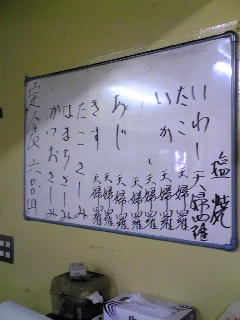 塩焼
いわし天婦羅
たこ 天婦羅
いか 天婦羅
天婦羅
あじ 天婦羅
きす 天婦羅
たこさしみ
はまちさしみ
かつおさしみ
定食 六百円